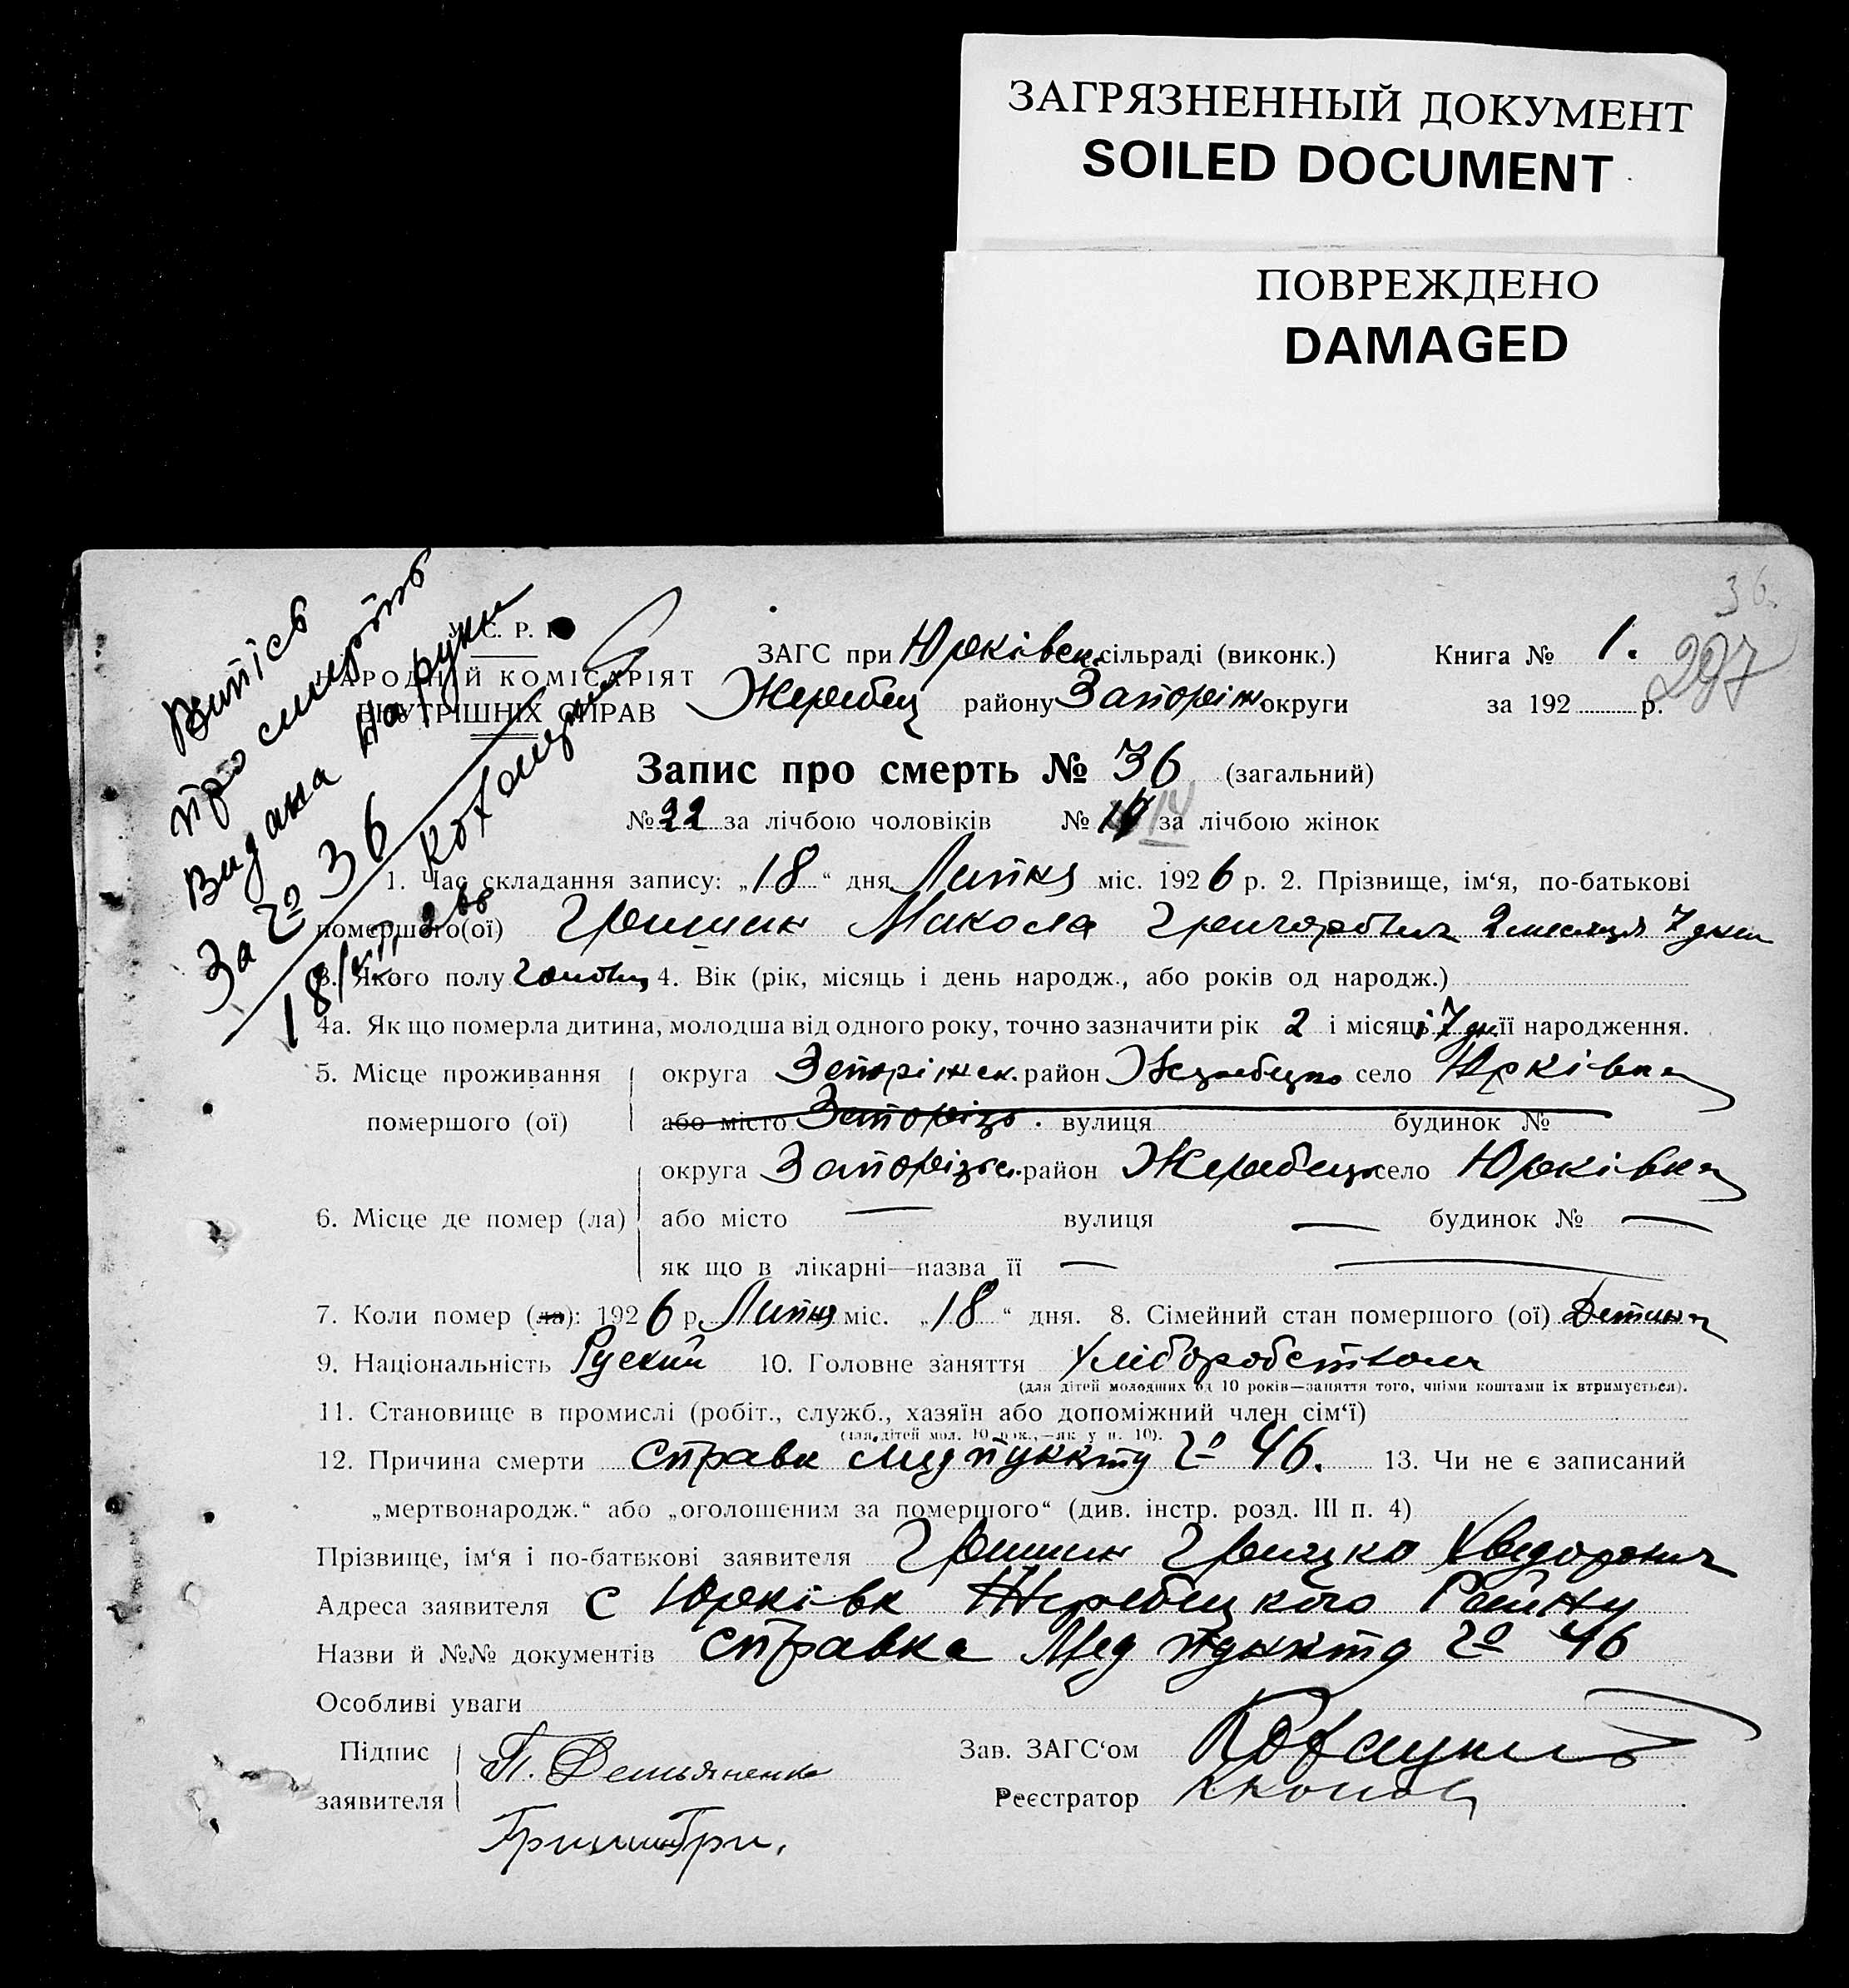 ЗАГРЯЗНЕННЫЙ ДОКУМЕНТ
SOILED DOCUMENT
ПОВРЕЖДЕНО
DAMAGED
36.
297
Витісь
про смерть
Видана на руки
За № 36
18/
У. С. Р. Р.
НАРОДНІЙ КОМІСАРІЯТ
ВНУТРІШНІХ СПРАВ
ЗАГС при Юрківск. сільраді (виконк.) Книга № 1.
Жеребец району Запоріж округи за 192 р.
Запис про смерть № 36 (загальний)
№ 22 за лічбою чоловіків № 14 за лічбою жінок
1. Час складання запису: „18“ дня Липня міс. 1926 р. 2. Прізвище, ім‘я, по-батькові
помершого(ої) Гришин Микола Григорович 2 месяця 7 дней
3. Якого полу чолов 4. Вік (рік, місяць і день народж., або років од народж.)
4а. Як що померла дитина, молодша від одного року, точно зазначити рік 2 і місяць 7 дн її народження.
5. Місце проживання округа Запоріжск. район Жеребецко село Юрківка
помершого (ої) або місто вулиця будинок №
округа Запорізьк. район Жеребецк село Юрківка
6. Місце де помер (ла) або місто — вулиця — будинок № —
як що в лікарні—назва її —
7. Коли помер (ла): 1926 р. Липня міс. „18“ дня. 8. Сімейний стан помершого (ої) Детина
9. Національність Руский 10. Головне заняття Хліборобством
(для дітей молодших од 10 років—заняття того, чиїми коштами їх втримується).
11. Становище в промислі (робіт., служб., хазяїн або допоміжний член сім‘ї)
(для дітей мол. 10 рок.,—як у п. 10).
12. Причина смерти справк медпункту № 46. 13. Чи не є записаний
„мертвонародж.“ або „оголошеним за помершого“ (див. інстр. розд. III п. 4)
Прізвище, ім‘я і по-батькові заявителя Гришин Грицко Хведорович
Адреса заявителя с Юрківк Жеребецкого Району
Назви й №№ документів справка Мед пункту № 46
Особливі уваги
Підпис П. Демьяненко Зав. ЗАГС‘ом
заявителя Реєстратор